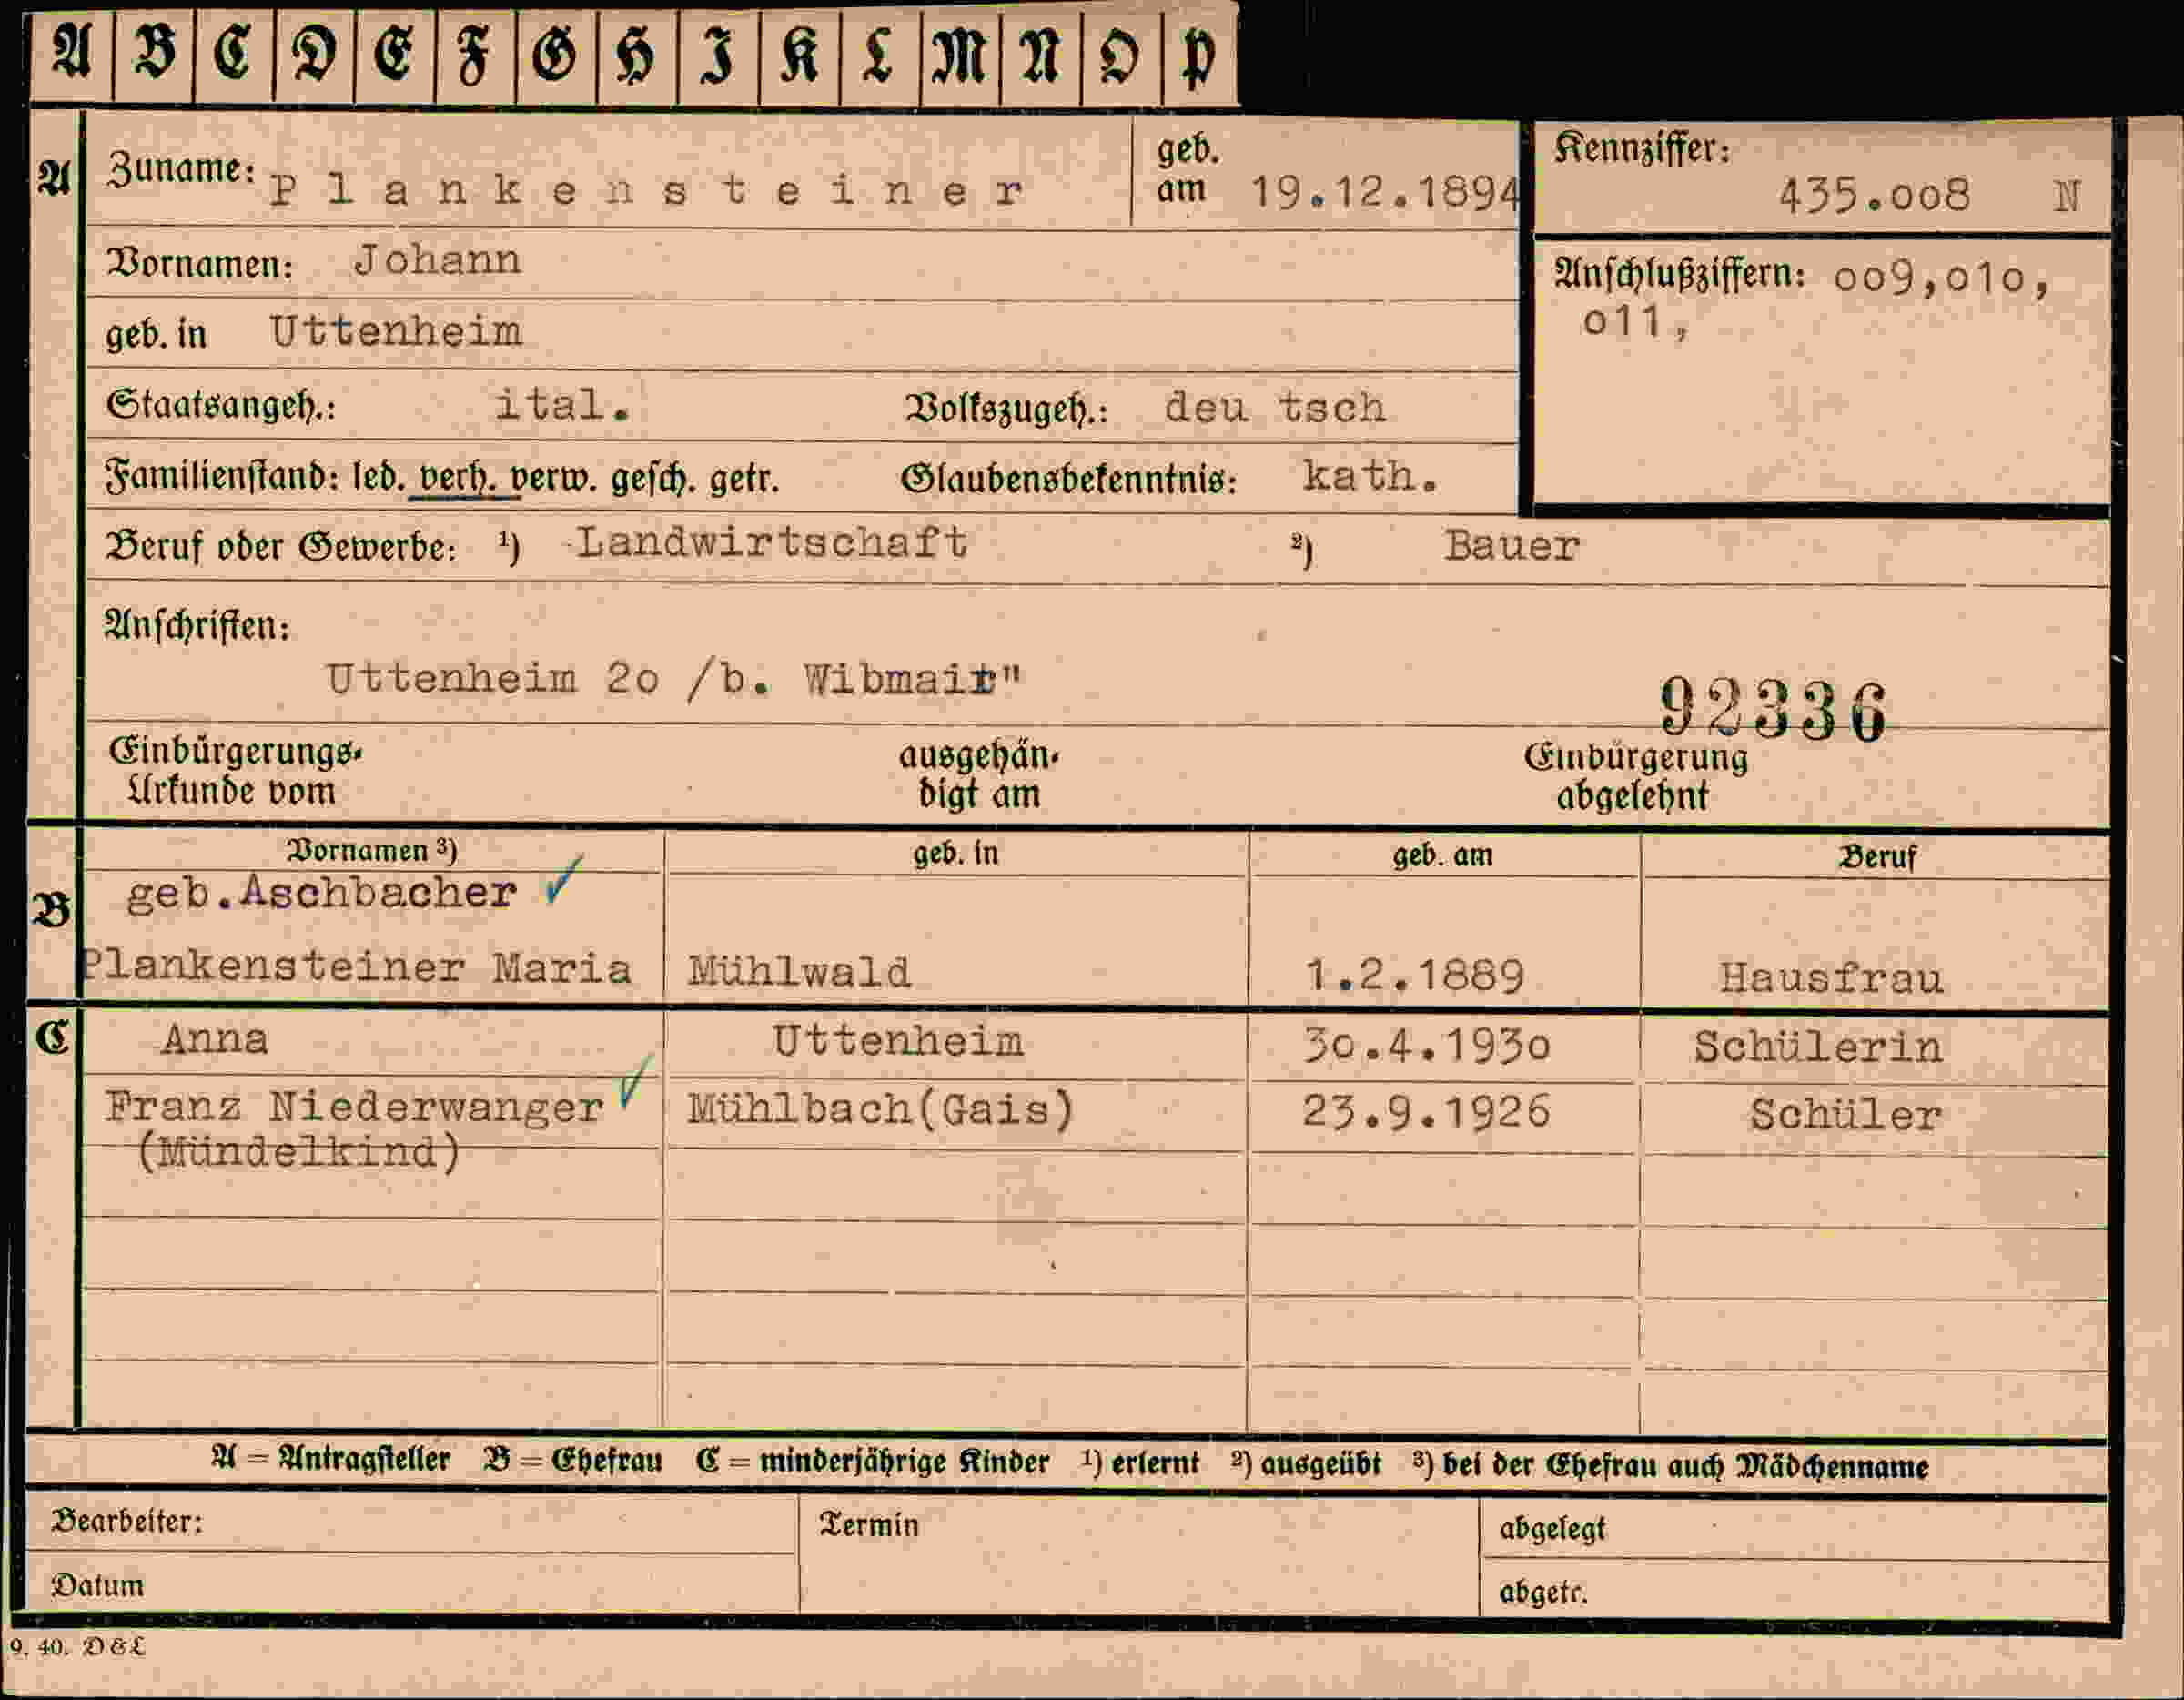 A B C D E F G H I K L M N O P
A Zuname: Plankensteiner geb. am 19.12.1894 Kennziffer: 435.oo8 N
Vornamen: Johann
Anschlußziffern: oo9,o1o,
o11,
geb. in Uttenheim
Staatsangeh.: ital. Volkszugeh.: deu tsch
Familienstand: led. verh. verw. gesch. getr. Glaubensbekenntnis: kath.
Beruf oder Gewerbe: ¹) Landwirtschaft ²) Bauer
Anschriften:
Uttenheim 2o /b. Wibmair"
92336
Einbürgerungs-Urkunde vom ausgehän-digt am Einbürgerung abgelehnt
Vornamen ³) geb. in geb. am Beruf
B geb.Aschbacher ✓
Plankensteiner Maria Mühlwald 1.2.1889 Hausfrau
C Anna Uttenheim 3o.4.193o Schülerin
Franz Niederwanger ✓ Mühlbach(Gais) 23.9.1926 Schüler
(Mündelkind)
A = Antragsteller B = Ehefrau C = minderjährige Kinder ¹) erlernt ²) ausgeübt ³) bei der Ehefrau auch Mädchenname
Bearbeiter: Termin abgelegt
Datum abgetr.
9. 40. D & L